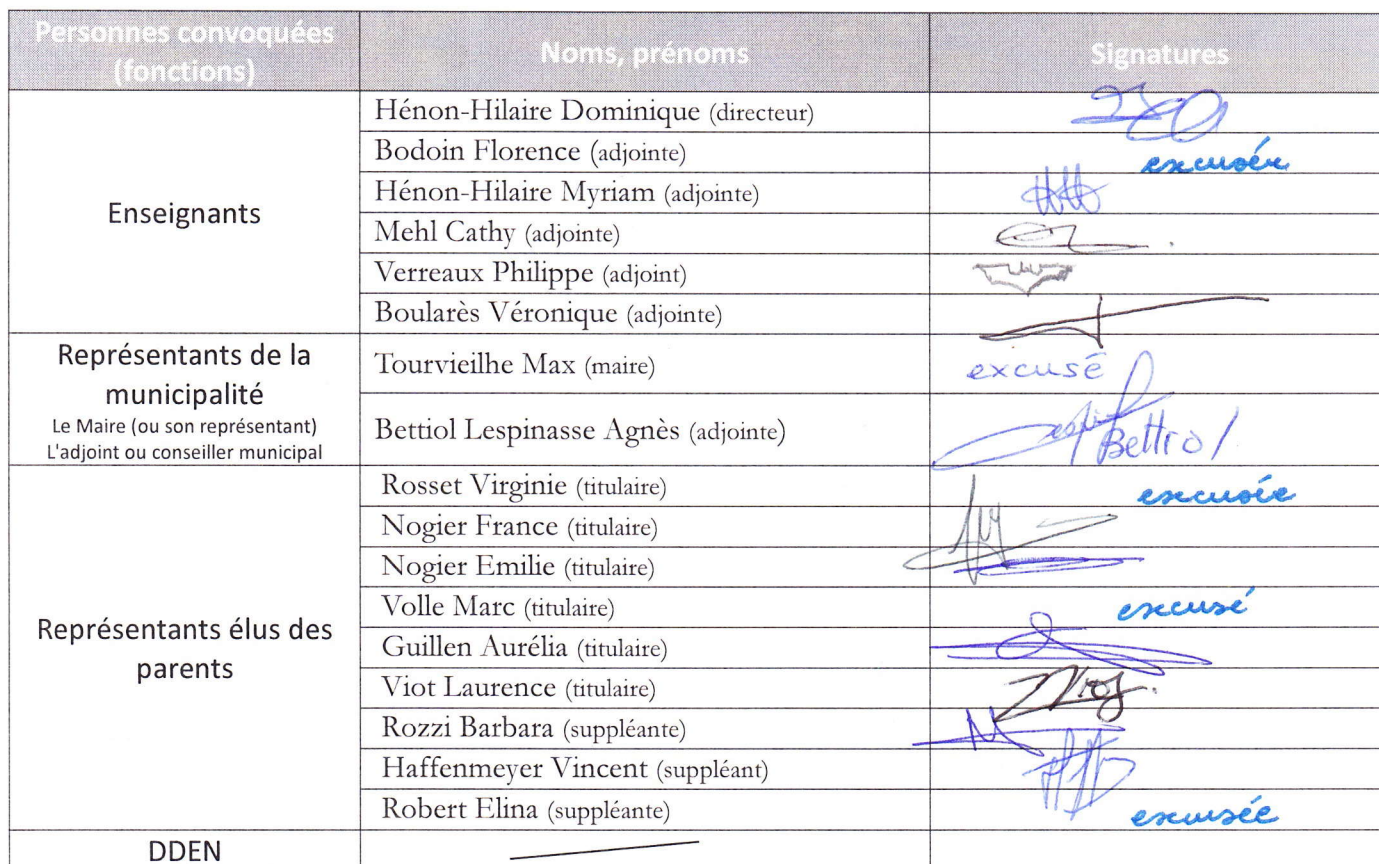 Personnes convoquées Noms, prénoms Signatures
(fonctions)
Enseignants
Hénon-Hilaire Dominique (directeur)
Bodoin Florence (adjointe) excusée
Hénon-Hilaire Myriam (adjointe)
Mehl Cathy (adjointe)
Verreaux Philippe (adjoint)
Boularès Véronique (adjointe)
Représentants de la
municipalité
Le Maire (ou son représentant)
L'adjoint ou conseiller municipal
Tourvieilhe Max (maire) excusé
Bettiol Lespinasse Agnès (adjointe) Bettiol
Représentants élus des
parents
Rosset Virginie (titulaire) excusée
Nogier France (titulaire)
Nogier Emilie (titulaire)
Volle Marc (titulaire) excusé
Guillen Aurélia (titulaire)
Viot Laurence (titulaire)
Rozzi Barbara (suppléante)
Haffenmeyer Vincent (suppléant)
Robert Elina (suppléante) excusée
DDEN